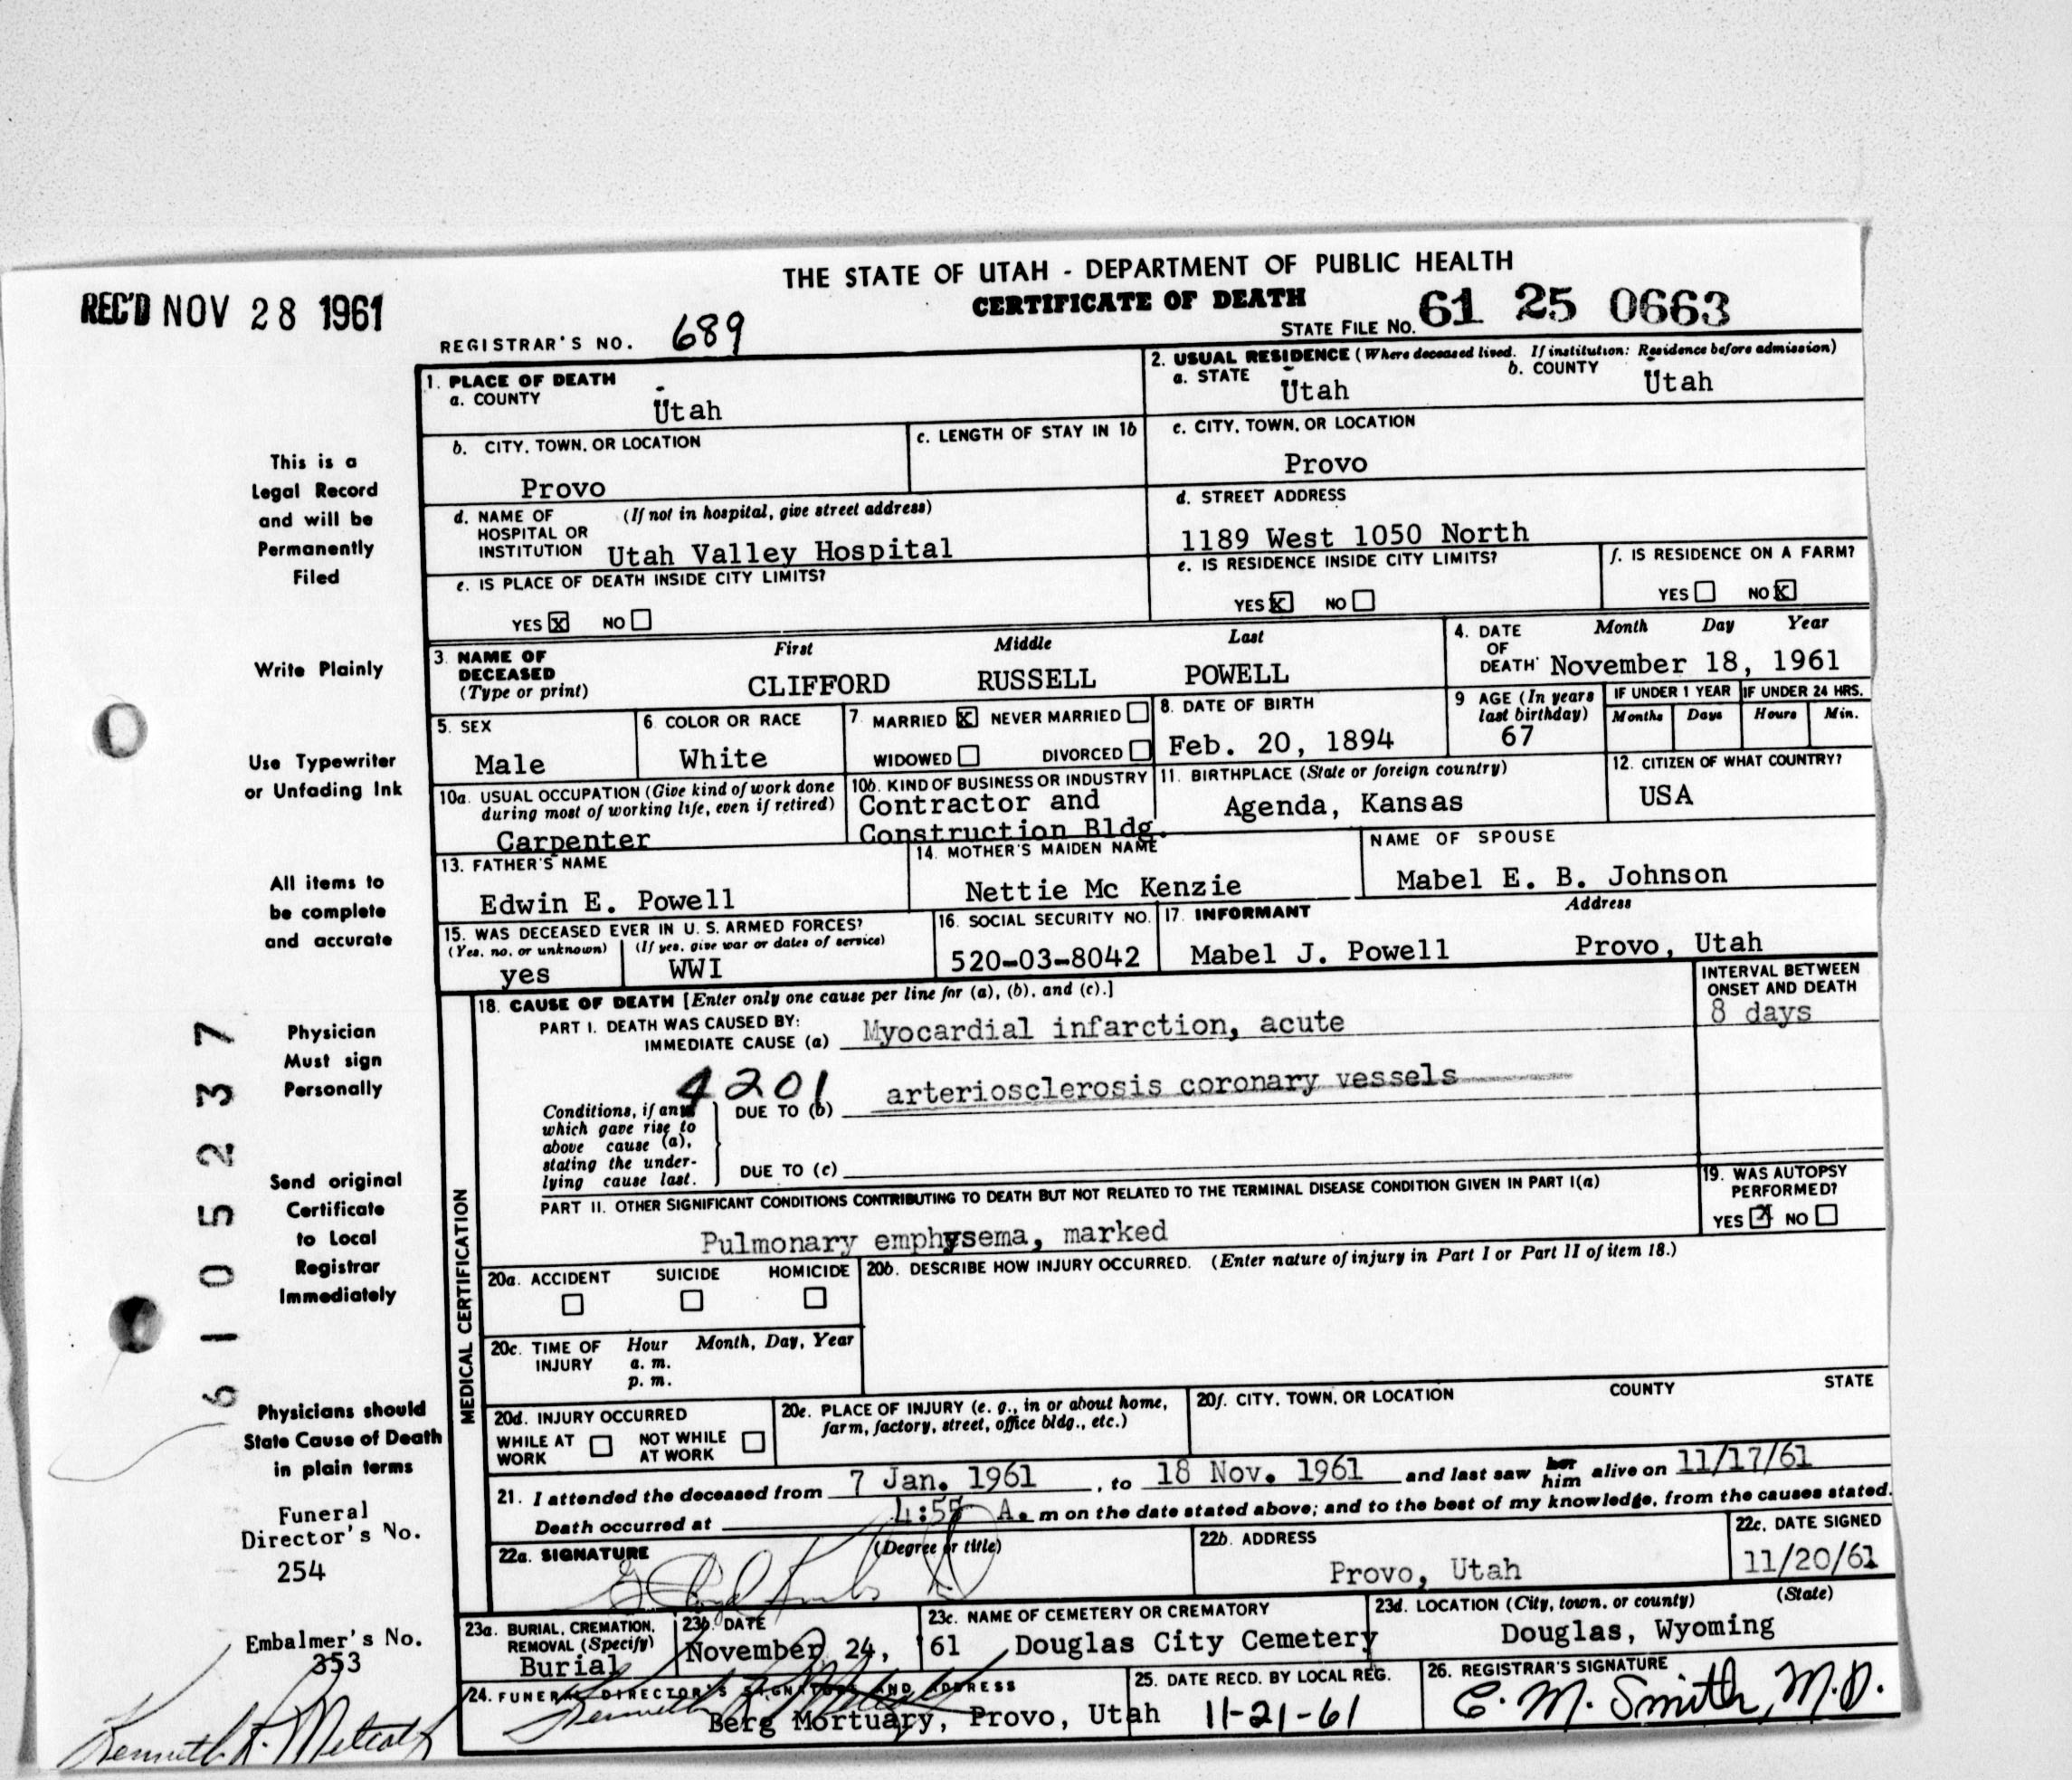 THE STATE OF UTAH - DEPARTMENT OF PUBLIC HEALTH
CERTIFICATE OF DEATH
REC'D NOV 28 1961
REGISTRAR'S NO. 689
STATE FILE NO. 61 25 0663
1. PLACE OF DEATH
a. COUNTY
Utah
2. USUAL RESIDENCE (Where deceased lived. If institution: Residence before admission)
a. STATE Utah b. COUNTY Utah
b. CITY, TOWN, OR LOCATION
Provo
c. LENGTH OF STAY IN 1b
c. CITY, TOWN, OR LOCATION
Provo
d. NAME OF (If not in hospital, give street address)
HOSPITAL OR
INSTITUTION Utah Valley Hospital
d. STREET ADDRESS
1189 West 1050 North
e. IS PLACE OF DEATH INSIDE CITY LIMITS?
YES X NO
e. IS RESIDENCE INSIDE CITY LIMITS?
YES X NO
f. IS RESIDENCE ON A FARM?
YES NO X
3. NAME OF DECEASED (Type or print)
First Middle Last
CLIFFORD RUSSELL POWELL
4. DATE OF DEATH Month Day Year
November 18, 1961
5. SEX
Male
6. COLOR OR RACE
White
7. MARRIED X NEVER MARRIED
WIDOWED DIVORCED
8. DATE OF BIRTH
Feb. 20, 1894
9 AGE (In years last birthday)
67
IF UNDER 1 YEAR IF UNDER 24 HRS.
Months Days Hours Min.
10a. USUAL OCCUPATION (Give kind of work done
during most of working life, even if retired)
Carpenter
10b. KIND OF BUSINESS OR INDUSTRY
Contractor and
Construction Bldg.
11. BIRTHPLACE (State or foreign country)
Agenda, Kansas
12. CITIZEN OF WHAT COUNTRY?
USA
13. FATHER'S NAME
Edwin E. Powell
14. MOTHER'S MAIDEN NAME
Nettie Mc Kenzie
NAME OF SPOUSE
Mabel E. B. Johnson
15. WAS DECEASED EVER IN U. S. ARMED FORCES?
(Yes, no, or unknown) (If yes, give war or dates of service)
yes WWI
16. SOCIAL SECURITY NO.
520-03-8042
17. INFORMANT Address
Mabel J. Powell Provo, Utah
18. CAUSE OF DEATH [Enter only one cause per line for (a), (b), and (c).]
INTERVAL BETWEEN
ONSET AND DEATH
8 days
PART I. DEATH WAS CAUSED BY:
IMMEDIATE CAUSE (a) Myocardial infarction, acute
4201
Conditions, if any
which gave rise to
above cause (a),
stating the under-
lying cause last.
DUE TO (b) arteriosclerosis coronary vessels
DUE TO (c)
PART II. OTHER SIGNIFICANT CONDITIONS CONTRIBUTING TO DEATH BUT NOT RELATED TO THE TERMINAL DISEASE CONDITION GIVEN IN PART I(a)
Pulmonary emphysema, marked
19. WAS AUTOPSY
PERFORMED?
YES X NO
MEDICAL CERTIFICATION
20a. ACCIDENT SUICIDE HOMICIDE
20b. DESCRIBE HOW INJURY OCCURRED. (Enter nature of injury in Part I or Part II of item 18.)
20c. TIME OF INJURY Hour Month, Day, Year
a. m.
p. m.
20d. INJURY OCCURRED
WHILE AT WORK NOT WHILE AT WORK
20e. PLACE OF INJURY (e. g., in or about home,
farm, factory, street, office bldg., etc.)
20f. CITY, TOWN, OR LOCATION COUNTY STATE
21. I attended the deceased from 7 Jan. 1961, to 18 Nov. 1961 and last saw her him alive on 11/17/61
Death occurred at 4:55 A. m on the date stated above; and to the best of my knowledge, from the causes stated.
22a. SIGNATURE (Degree or title)
22b. ADDRESS
Provo, Utah
22c. DATE SIGNED
11/20/61
23a. BURIAL, CREMATION,
REMOVAL (Specify)
Burial
23b. DATE
November 24, '61
23c. NAME OF CEMETERY OR CREMATORY
Douglas City Cemetery
23d. LOCATION (City, town, or county) (State)
Douglas, Wyoming
24. FUNERAL DIRECTOR'S SIGNATURE AND ADDRESS
Berg Mortuary, Provo, Utah
25. DATE RECD. BY LOCAL REG.
11-21-61
26. REGISTRAR'S SIGNATURE
C. M. Smith, M.D.
This is a
Legal Record
and will be
Permanently
Filed
Write Plainly
Use Typewriter
or Unfading Ink
All items to
be complete
and accurate
Physician
Must sign
Personally
Send original
Certificate
to Local
Registrar
Immediately
Physicians should
State Cause of Death
in plain terms
Funeral
Director's No.
254
Embalmer's No.
353
Kenneth L. Metcalf
6105237